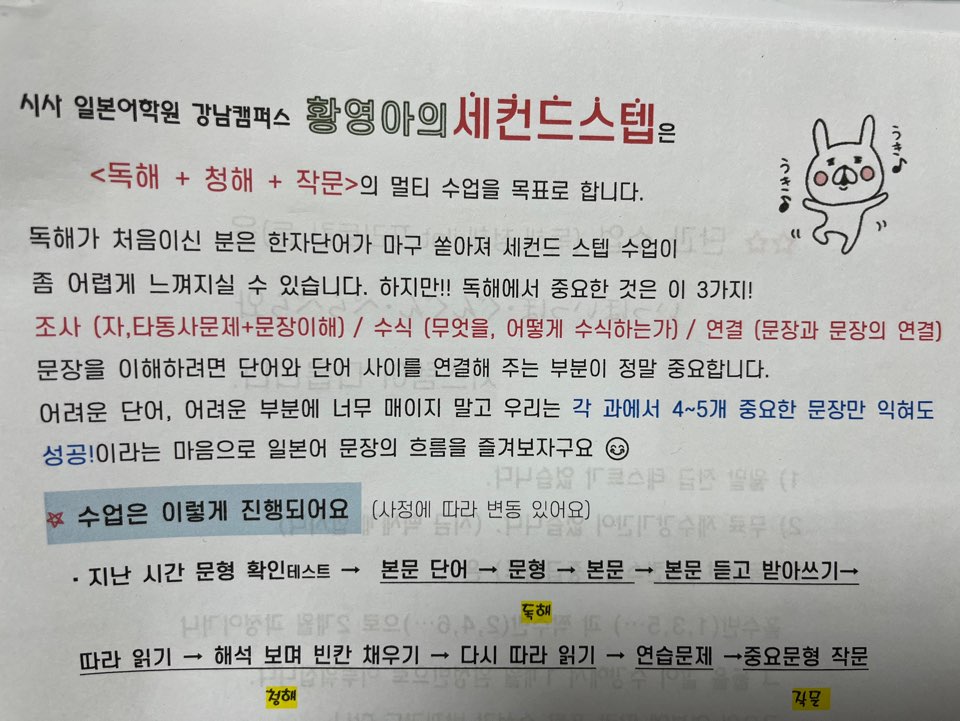 시사 일본어학원 강남캠퍼스 황영아의세컨드스텝은
<독해 + 청해 + 작문>의 멀티 수업을 목표로 합니다.
うきっ♪
うきっ♪
독해가 처음이신 분은 한자단어가 마구 쏟아져 세컨드 스텝 수업이
좀 어렵게 느껴지실 수 있습니다. 하지만!! 독해에서 중요한 것은 이 3가지!
조사 (자,타동사문제+문장이해) / 수식 (무엇을, 어떻게 수식하는가) / 연결 (문장과 문장의 연결)
문장을 이해하려면 단어와 단어 사이를 연결해 주는 부분이 정말 중요합니다.
어려운 단어, 어려운 부분에 너무 매이지 말고 우리는 각 과에서 4~5개 중요한 문장만 익혀도
성공!이라는 마음으로 일본어 문장의 흐름을 즐겨보자구요 ☺
☆ 수업은 이렇게 진행되어요 (사정에 따라 변동 있어요)
· 지난 시간 문형 확인테스트 → 본문 단어 → 문형 → 본문 → 본문 듣고 받아쓰기→
독해
따라 읽기 → 해석 보며 빈칸 채우기 → 다시 따라 읽기 → 연습문제 →중요문형 작문
청해 작문